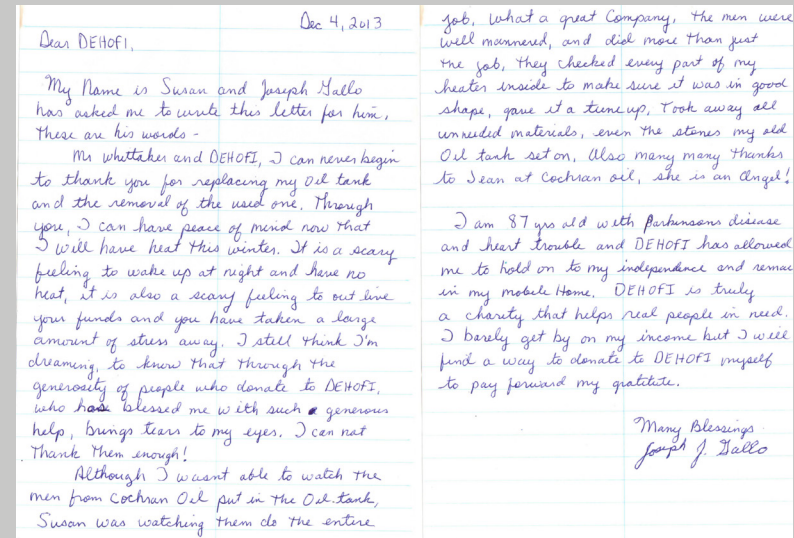 Dec 4, 2013
Dear DEHOFI,
My Name is Susan and Joseph Gallo
has asked me to write this letter for him,
These are his words -
Mr Whittaker and DEHOFI, I can never begin
to thank you for replacing my Oil tank
and the removal of the used one. Through
you, I can have peace of mind now that
I will have heat this winter. It is a scary
feeling to wake up at night and have no
heat, it is also a scary feeling to out live
your funds and you have taken a large
amount of stress away. I still think I'm
dreaming, to know that through the
generosity of people who donate to DEHOFI,
who has blessed me with such a generous
help, brings tears to my eyes. I can not
Thank Them enough!
Although I wasnt able to watch the
men from Cochran Oil put in the Oil tank,
Susan was watching them do the entire
job, what a great Company, the men were
well mannered, and did more than just
the job, they checked every part of my
heater inside to make sure it was in good
shape, gave it a tune up, Took away all
unneeded materials, even the stones my old
Oil tank set on, Also many many thanks
to Jean at Cochran oil, she is an Angel!
I am 87 yrs old with Parkinsons disease
and heart trouble and DEHOFI has allowed
me to hold on to my independence and remai
in my mobile Home. DEHOFI is truly
a charity that helps real people in need.
I barely get by on my income but I will
find a way to donate to DEHOFI myself
to pay forward my gratitute.
Many Blessings
Joseph J. Gallo